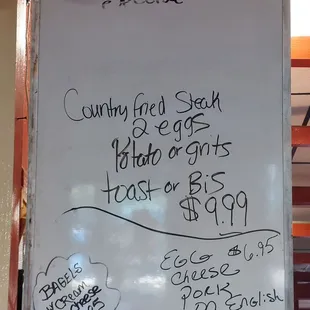 Country fried Steak
2 eggs
Potato or grits
toast or Bis
$9.99
EGG $6.95
Cheese
PORK
ON English
BAGELS
w/CREAM
cheese